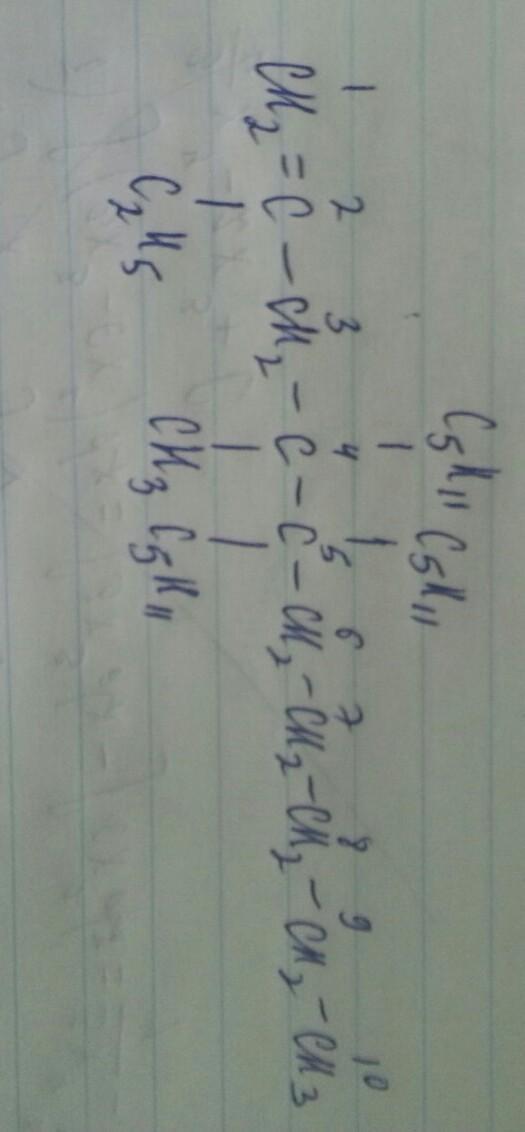 C5H11 C5H11
1 2 3 4 5 6 7 8 9 10
CH2 = C - CH2 - C - C - CH2 - CH2 - CH2 - CH2 - CH3
C2H5 CH3 C5H11